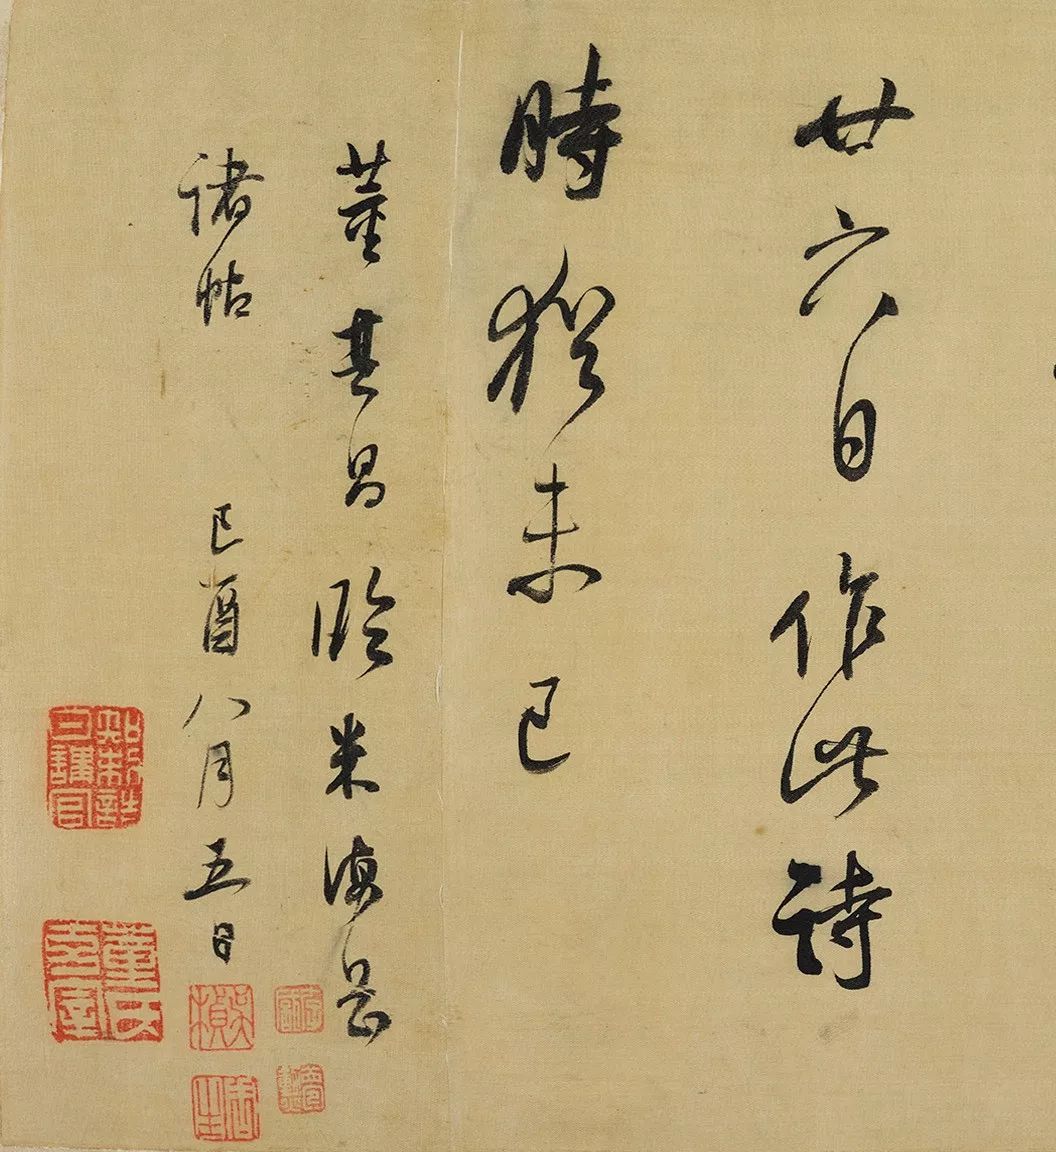 廿六日作此詩
時猶未已
董其昌臨米海岳
諸帖 己酉八月五日
知制誥日講官
董氏玄宰
吳楨
周生